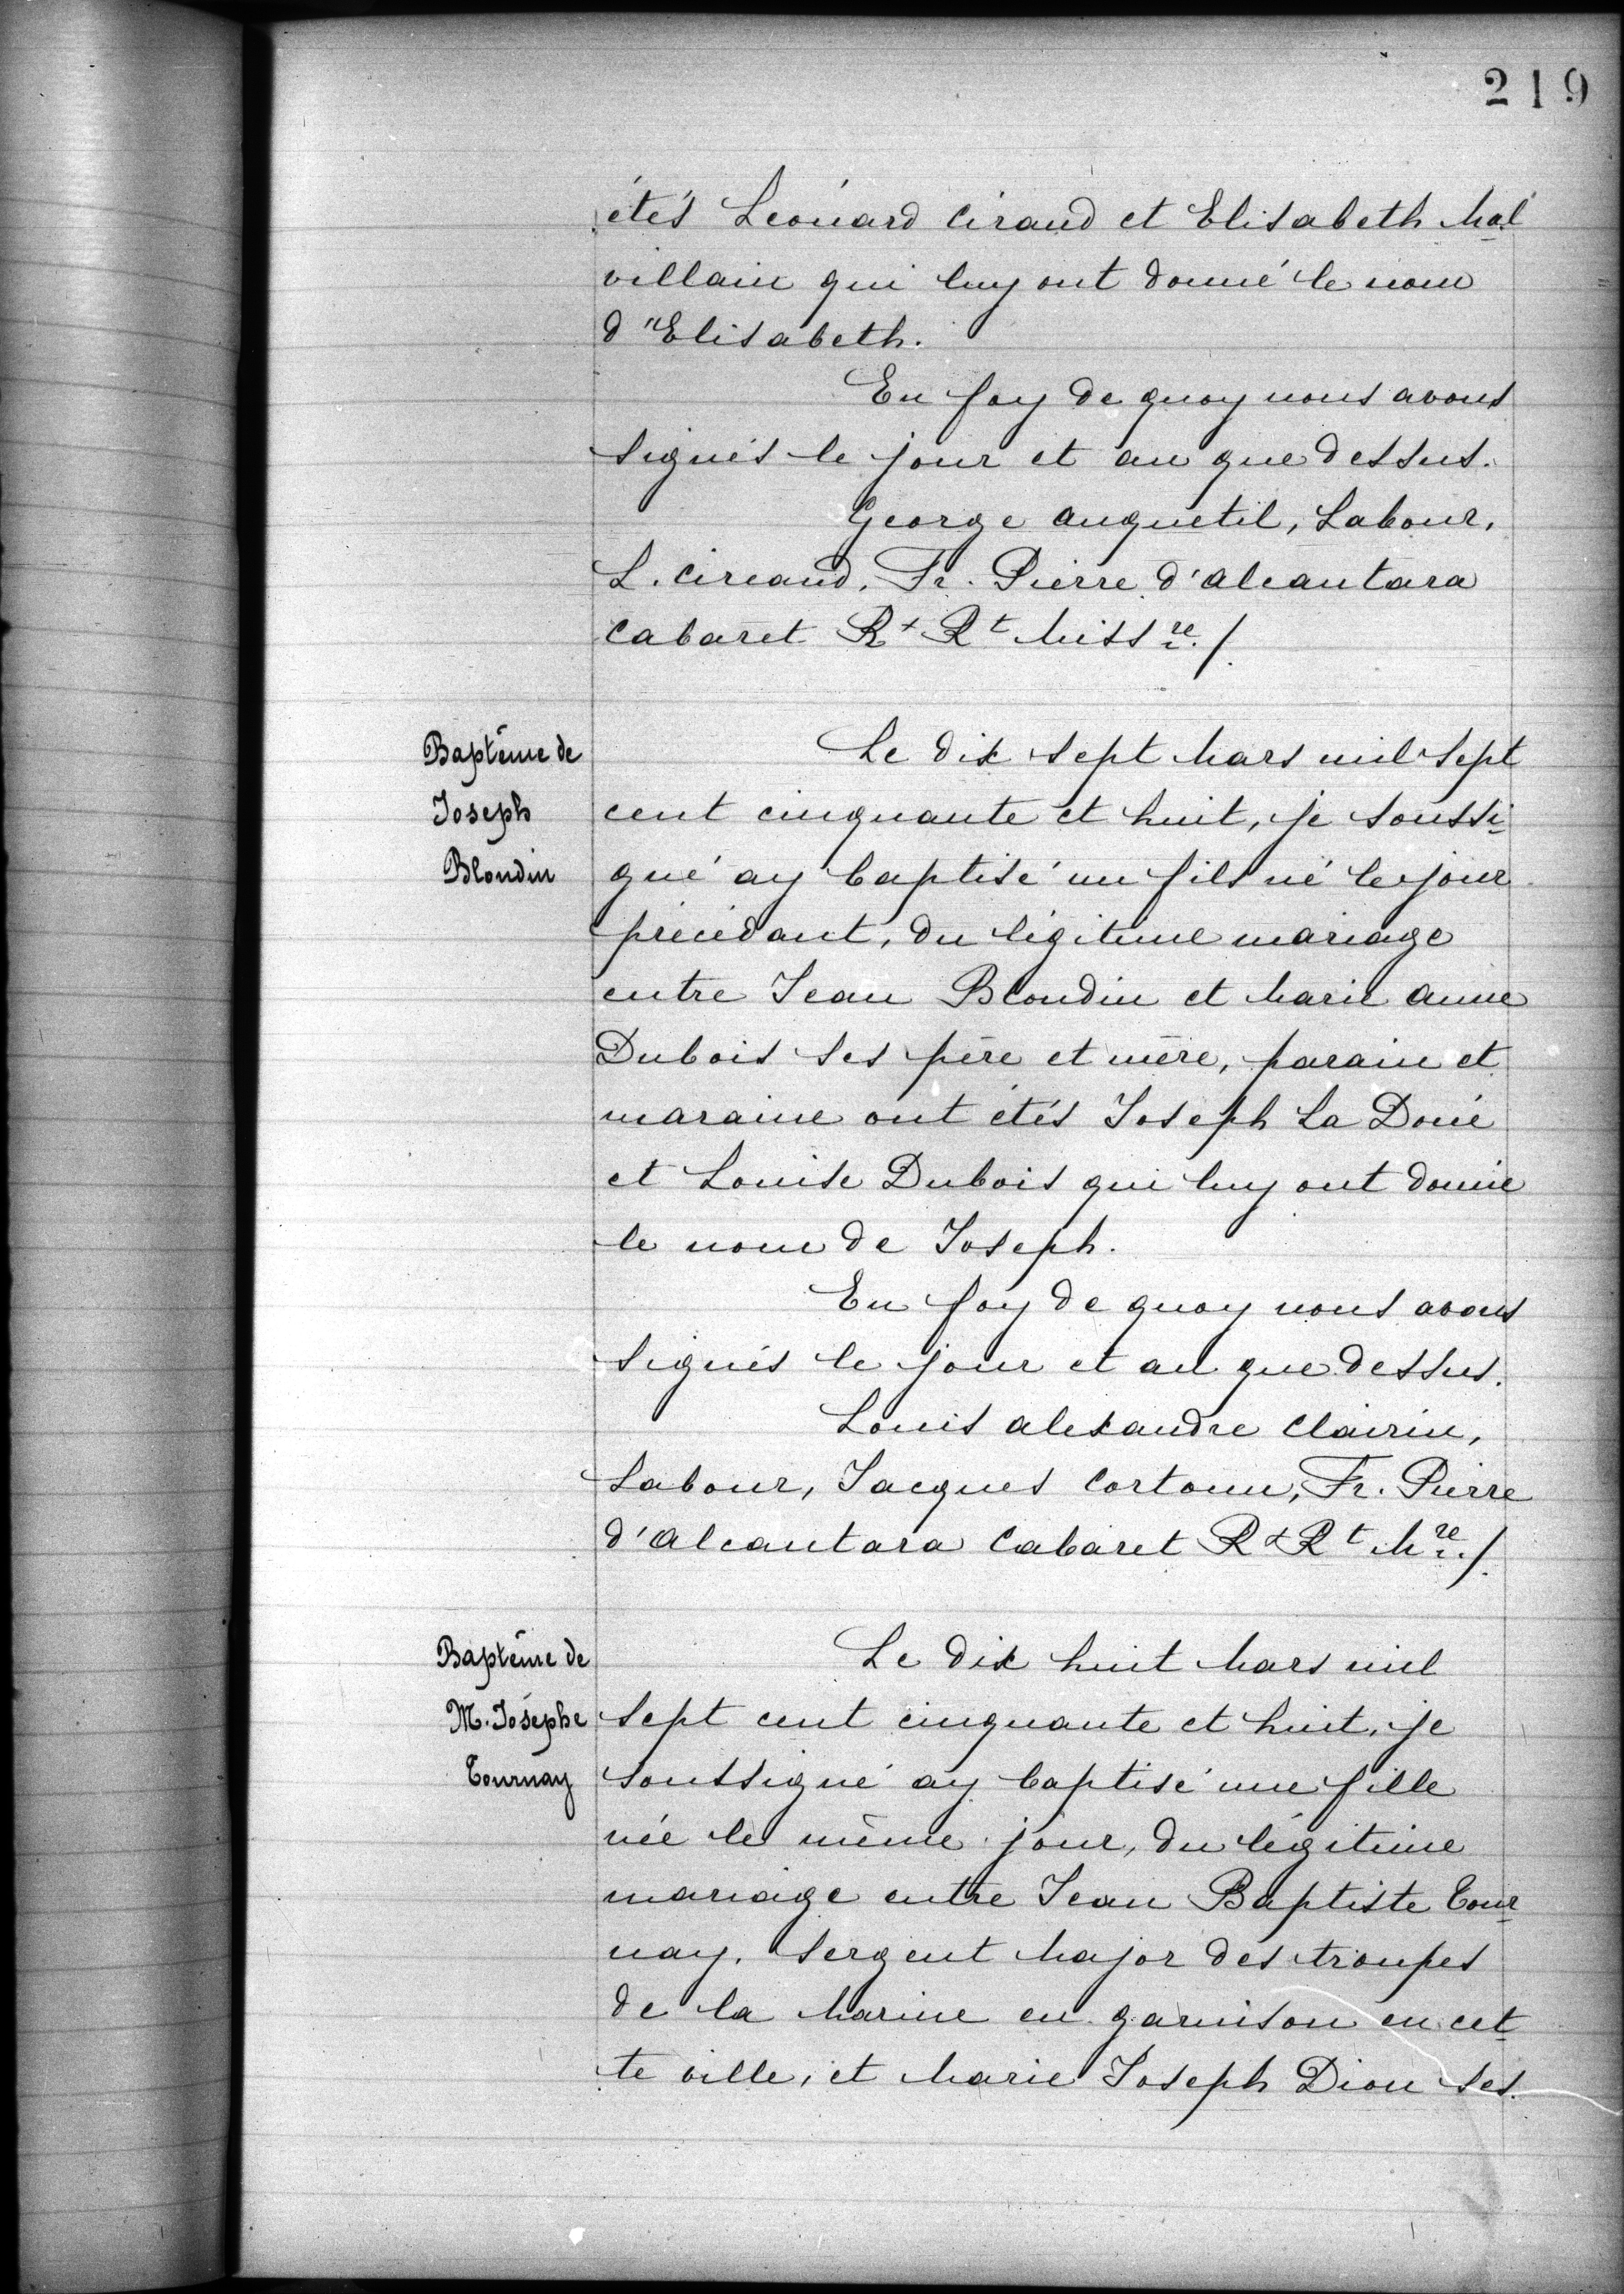 219
étés Leonard Ciraud et Elisabeth Mal
villain qui luy ont donné le nom
d'Elisabeth.
En foy de quoy nous avons
signés le jour et an que dessus.
George Anquetil, Sabour,
L. Cireaud, Fr. Pierre d'Alcantara
Cabaret R+ Rt Missre./.
Baptême de
Joseph
Blondin
Le dix sept Mars mil sept
cent cinquante et huit, je soussi-
gné ay baptisé un fils né le jour
précédant, du légitime mariage
entre Jean Blondin et Marie Anne
Dubois ses père et mère, parain et
maraine ont étés Joseph La Doué
et Louise Dubois qui luy ont donné
le nom de Joseph.
En foy de quoy nous avons
signés le jour et an que dessus.
Louis Alexandre Clairin,
Sabour, Jacques Cortoun, Fr. Pierre
d'Alcantara Cabaret R+Rt Mre./.
Baptême de
M. Josèphe
Tournay
Le dix huit Mars mil
sept cent cinquante et huit, je
soussigné ay baptisé une fille
née le même jour, du légitime
mariage entre Jean Baptiste Tour-
nay, Sergent Major des troupes
de la Marine en garnison en cet-
te ville, et Marie Joseph Dion ses